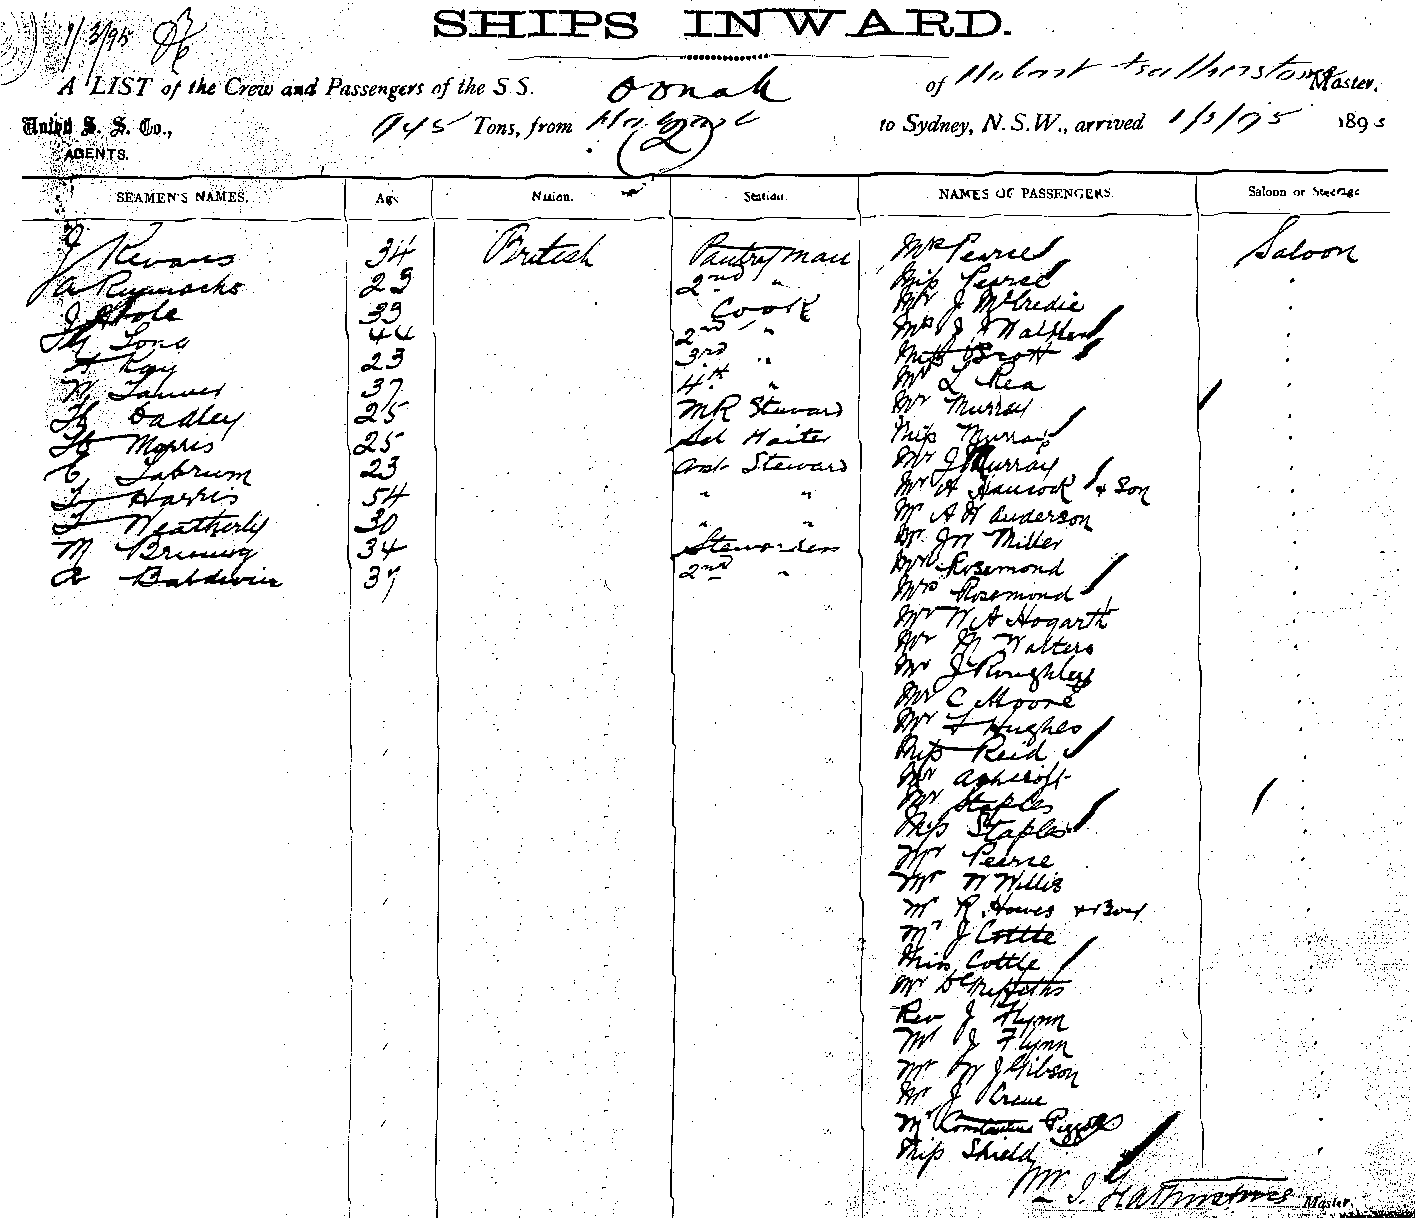 SHIPS INWARD.
1/3/95
A LIST of the Crew and Passengers of the S.S. Oonah of Hobart Featherstone Master.
Union S. S. Co., 945 Tons, from to Sydney, N.S.W., arrived 1/3/95 1895
AGENTS. (2)
SEAMEN'S NAMES. Age Nation. Station. NAMES OF PASSENGERS. Saloon or Steerage
J Kevans 34 British Pantryman Mrs Pearce Saloon
A 23 2nd " Miss Pearce
J 39 Cook Mr J McCredie
Long 44 2nd " Mrs J
A Ray 23 3rd " Miss Scott
W Tanner 37 4th " Mr L Rea
H Dadley 25 MR Steward Mr Murray
H Morris 25 Sal Waiter Miss Murray
C Tabrum 23 Asst Steward Mr J Murray
Harris 54 " " Mr A Hancock & Son
F Weatherly 30 " " Mr A W Anderson
M 34 Stewardess Mr Jn Miller
A Baldwin 37 2nd " Mr Rosemond
Mrs Rosemond
Mr W A Hogarth
Mr Walters
Mr J Roughley
Mr C Moore
Mr F Hughes
Miss Reid
Mr Ashcroft
Mr Staples
Miss Staples
Mr Pearce
Mr W Willis
Mr R. Howes & Boy
Mr J Cottle
Miss Cottle
Mr D Griffiths
Rev J Flynn
Mr J Flynn
Mr W J Gibson
Mr J
Mr Constantine
Miss Shield
Featherstone Master.